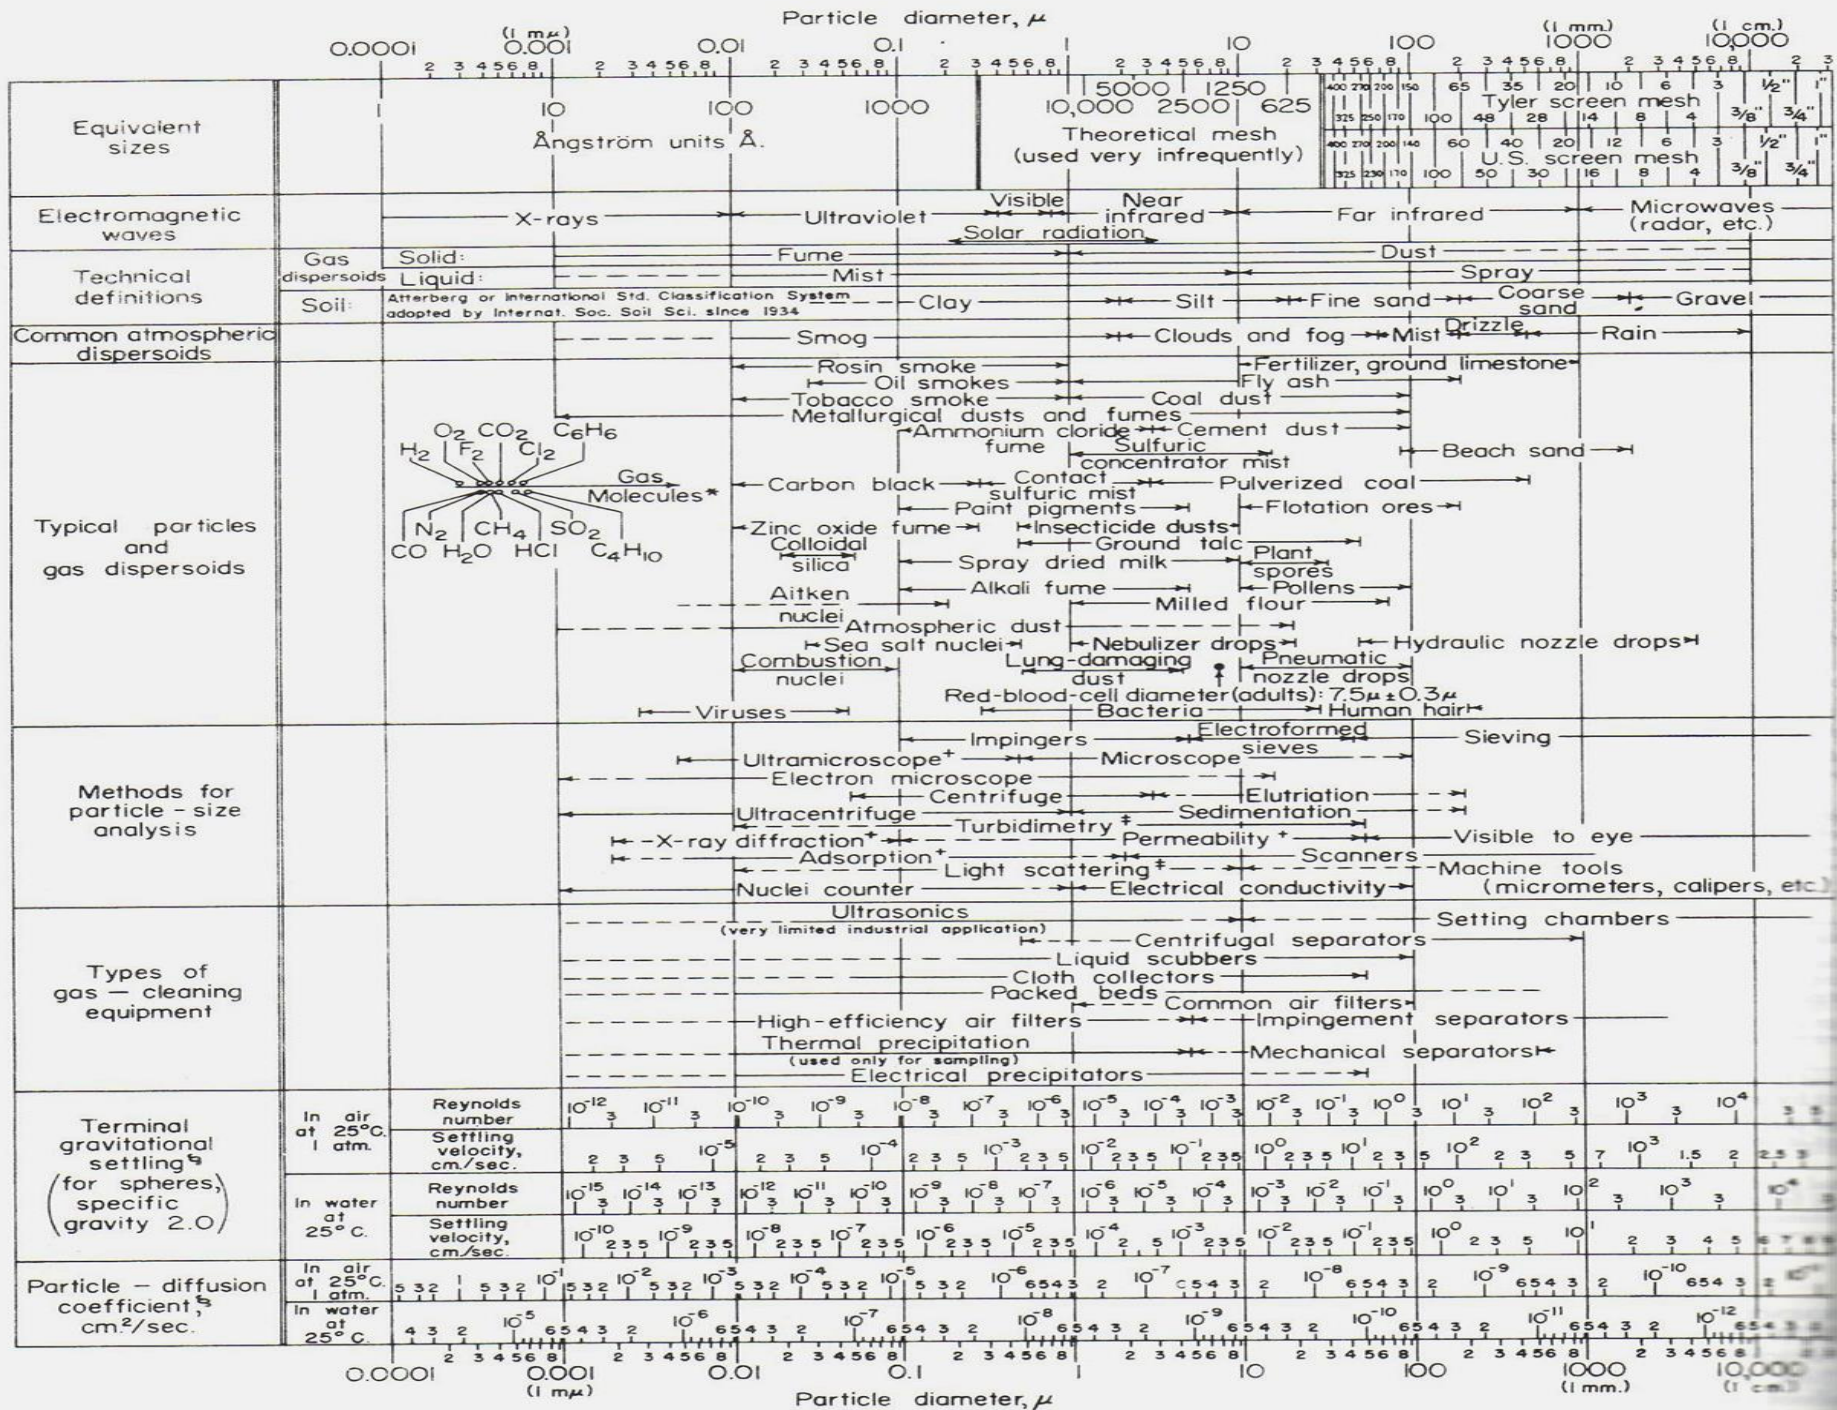 Particle diameter, μ
(1 mμ) (1 mm.) (1 cm.)
0.0001 0.001 0.01 0.1 1 10 100 1000 10,000
2 3 4 5 6 8 2 3 4 5 6 8 2 3 4 5 6 8 2 3 4 5 6 8 2 3 4 5 6 8 2 3 4 5 6 8 2 3 4 5 6 8 2 3 4 5 6 8 2 3
Equivalent sizes
1 10 100 1000
Ångström units Å.
5000 1250
10,000 2500 625
Theoretical mesh
(used very infrequently)
400 270 200 150 65 35 20 10 6 3 1/2" 1"
Tyler screen mesh
325 250 170 100 48 28 14 8 4 3/8" 3/4"
400 270 200 140 60 40 20 12 6 3 1/2" 1"
U.S. screen mesh
325 230 170 100 50 30 16 8 4 3/8" 3/4"
Electromagnetic waves
X-rays Ultraviolet Visible Near infrared Far infrared Microwaves (radar, etc.)
Solar radiation
Technical definitions
Gas dispersoids
Solid: Fume Dust
Liquid: Mist Spray
Soil: Atterberg or International Std. Classification System
adopted by Internat. Soc. Soil Sci. since 1934
Clay Silt Fine sand Coarse sand Gravel
Common atmospheric dispersoids
Smog Clouds and fog Mist Drizzle Rain
Typical particles and gas dispersoids
Rosin smoke Fertilizer, ground limestone
Oil smokes Fly ash
Tobacco smoke Coal dust
Metallurgical dusts and fumes
O2 CO2 C6H6
H2 F2 Cl2
Gas Molecules*
N2 CH4 SO2
CO H2O HCl C4H10
Ammonium cloride fume Cement dust
Sulfuric concentrator mist Beach sand
Carbon black Contact sulfuric mist Pulverized coal
Paint pigments Flotation ores
Zinc oxide fume Insecticide dusts
Colloidal silica Ground talc
Spray dried milk Plant spores
Alkali fume Pollens
Aitken nuclei Milled flour
Atmospheric dust
Sea salt nuclei Nebulizer drops Hydraulic nozzle drops
Combustion nuclei Lung-damaging dust Pneumatic nozzle drops
Red-blood-cell diameter (adults): 7.5μ±0.3μ
Viruses Bacteria Human hair
Methods for particle-size analysis
Impingers Electroformed sieves Sieving
Ultramicroscope+ Microscope
Electron microscope
Centrifuge Elutriation
Ultracentrifuge Sedimentation
Turbidimetry‡
X-ray diffraction+ Permeability+ Visible to eye
Adsorption+ Scanners
Light scattering‡ Machine tools
Nuclei counter Electrical conductivity (micrometers, calipers, etc.)
Types of gas-cleaning equipment
Ultrasonics
(very limited industrial application) Setting chambers
Centrifugal separators
Liquid scubbers
Cloth collectors
Packed beds
Common air filters
High-efficiency air filters Impingement separators
Thermal precipitation
(used only for sampling) Mechanical separators
Electrical precipitators
Terminal gravitational settling
(for spheres, specific gravity 2.0)
In air at 25°C. 1 atm.
Reynolds number
10-12 10-11 10-10 10-9 10-8 10-7 10-6 10-5 10-4 10-3 10-2 10-1 100 101 102 103 104
Settling velocity, cm./sec.
10-5 10-4 10-3 10-2 10-1 100 101 102 103
In water at 25°C.
Reynolds number
10-15 10-14 10-13 10-12 10-11 10-10 10-9 10-8 10-7 10-6 10-5 10-4 10-3 10-2 10-1 100 101 102 103 104
Settling velocity, cm./sec.
10-10 10-9 10-8 10-7 10-6 10-5 10-4 10-3 10-2 10-1 100 101
Particle-diffusion coefficient, cm.2/sec.
In air at 25°C. 1 atm.
1 10-1 10-2 10-3 10-4 10-5 10-6 10-7 10-8 10-9 10-10
In water at 25°C.
10-5 10-6 10-7 10-8 10-9 10-10 10-11 10-12
2 3 4 5 6 8 2 3 4 5 6 8 2 3 4 5 6 8 2 3 4 5 6 8 2 3 4 5 6 8 2 3 4 5 6 8 2 3 4 5 6 8 2 3 4 5 6 8
0.0001 0.001 0.01 0.1 1 10 100 1000 10,000
(1 mμ) (1 mm.) (1 cm.)
Particle diameter, μ